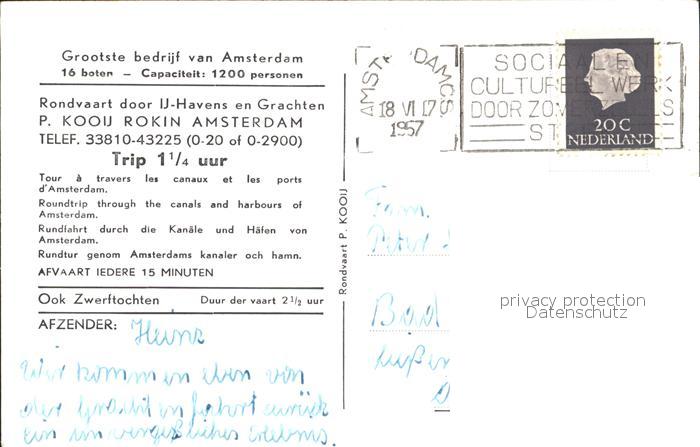 Grootste bedrijf van Amsterdam
16 boten – Capaciteit: 1200 personen
Rondvaart door IJ-Havens en Grachten
P. KOOIJ ROKIN AMSTERDAM
TELEF. 33810-43225 (0-20 of 0-2900)
Trip 1¼ uur
Tour à travers les canaux et les ports
d'Amsterdam.
Roundtrip through the canals and harbours of
Amsterdam.
Rundfahrt durch die Kanäle und Häfen von
Amsterdam.
Rundtur genom Amsterdams kanaler och hamn.
AFVAART IEDERE 15 MINUTEN
Ook Zwerftochten Duur der vaart 2½ uur
AFZENDER: Heinz
Wir kommen eben von
der Grachtenfahrt zurück
ein unvergeßliches Erlebnis.
Rondvaart P. KOOIJ
AMSTERDAM CS
18 VI 17
1957
SOCIAAL EN
CULTUREEL WERK
DOOR ZOMERZEGELS
20 C
NEDERLAND
Fam.
Peter
Bad
privacy protection
Datenschutz